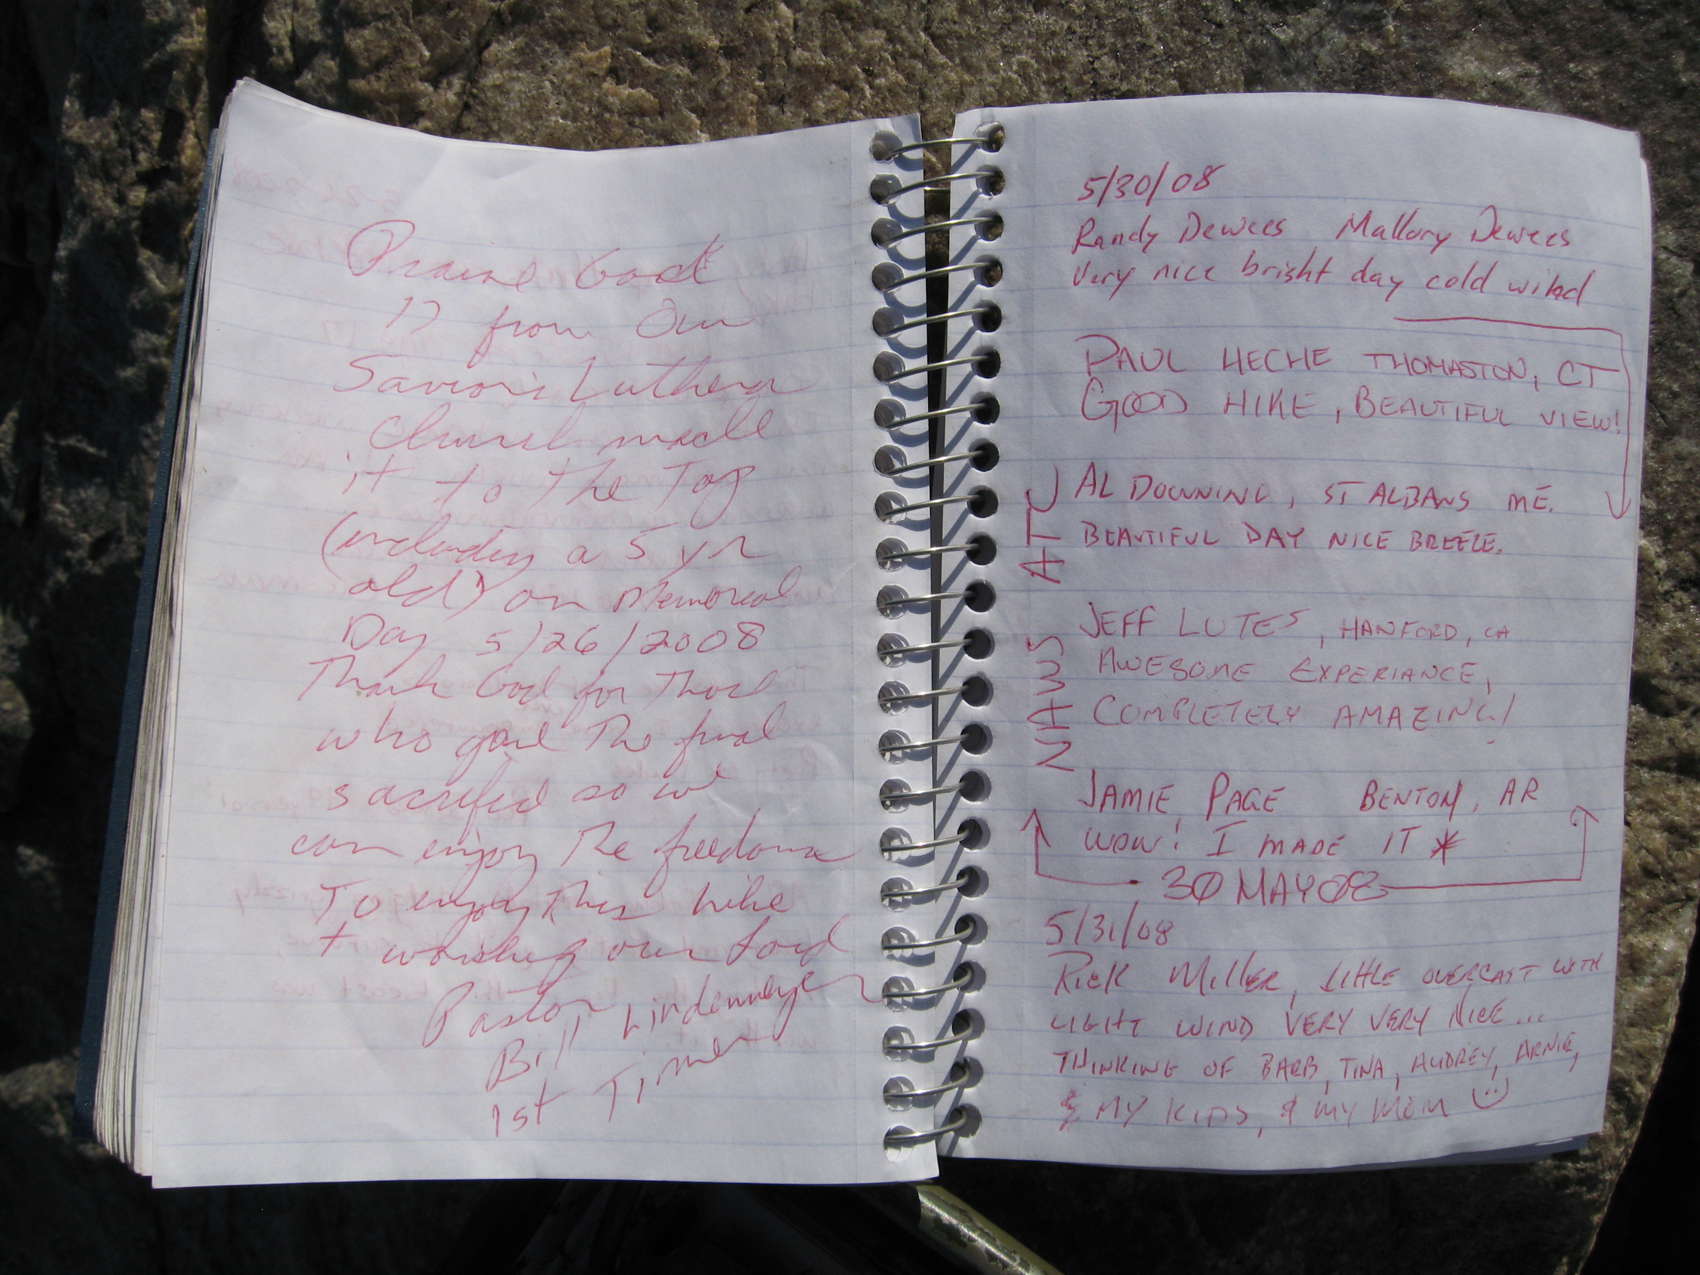 Praise God
17 from Our
Savior's Lutheran
Church made
it to the Top
(including a 5 yr
old) on Memorial
Day 5/26/2008
Thank God for those
who gave the final
sacrifice so we
can enjoy the freedoms
To enjoy this hike
+ worship our Lord
Pastor
Bill Lindenmeyer
1st Timer
5/30/08
Randy Dewees Mallory Dewees
Very nice bright day cold wind
PAUL HECHE THOMASTON, CT
GOOD HIKE, BEAUTIFUL VIEW!
AL DOWNING, ST ALBANS ME.
BEAUTIFUL DAY NICE BREEZE.
NAWS ATC
JEFF LUTES, HANFORD, CA
AWESOME EXPERIANCE,
COMPLETELY AMAZING!
JAMIE PAGE BENTON, AR
WOW! I MADE IT *
30 MAY 08
5/31/08
RICK MILLER, LITTLE OVERCAST WITH
LIGHT WIND VERY VERY NICE...
THINKING OF BARB, TINA, AUDREY, ARNIE,
& MY KIDS, & MY MOM